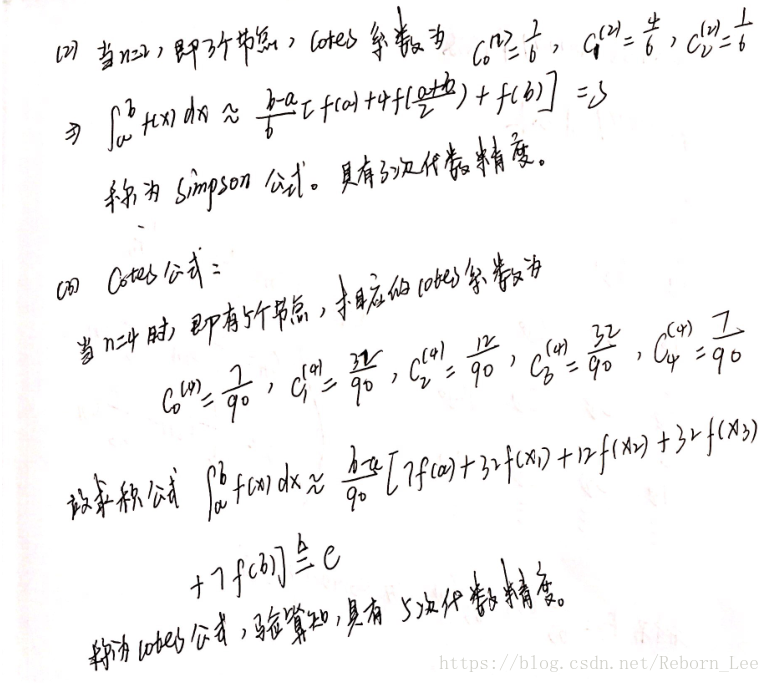 (2) 当n=2, 即3个节点, Cotes 系数为 C₀⁽²⁾=1/6, C₁⁽²⁾=4/6, C₂⁽²⁾=1/6
⇒ ∫ₐᵇ f(x) dx ≈ (b-a)/6 [f(a)+4f((a+b)/2)+f(b)] =S
称为 Simpson 公式。具有3次代数精度。
(3) Cotes公式:
当n=4时, 即有5个节点, 相应的cotes系数为
C₀⁽⁴⁾=7/90, C₁⁽⁴⁾=32/90, C₂⁽⁴⁾=12/90, C₃⁽⁴⁾=32/90, C₄⁽⁴⁾=7/90
故求积公式 ∫ₐᵇ f(x) dx ≈ (b-a)/90 [7f(a)+32f(x₁)+12f(x₂)+32f(x₃)
+7f(b)] ≜ C
称为cotes公式, 验算知, 具有 5次代数精度。
https://blog.csdn.net/Reborn_Lee